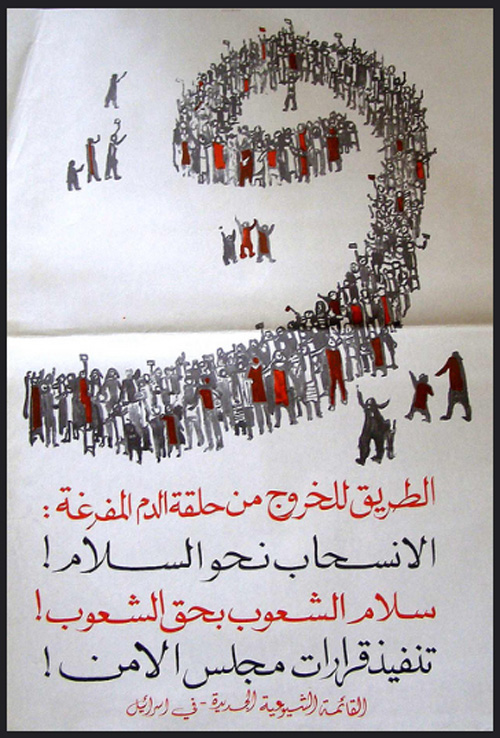 الطريق للخروج من حلقة الدم المفرغة :
الانسحاب نحو السلام !
سلام الشعوب بحق الشعوب !
تنفيذ قرارات مجلس الامن !
القائمة الشيوعية الجديدة - في اسرائيل